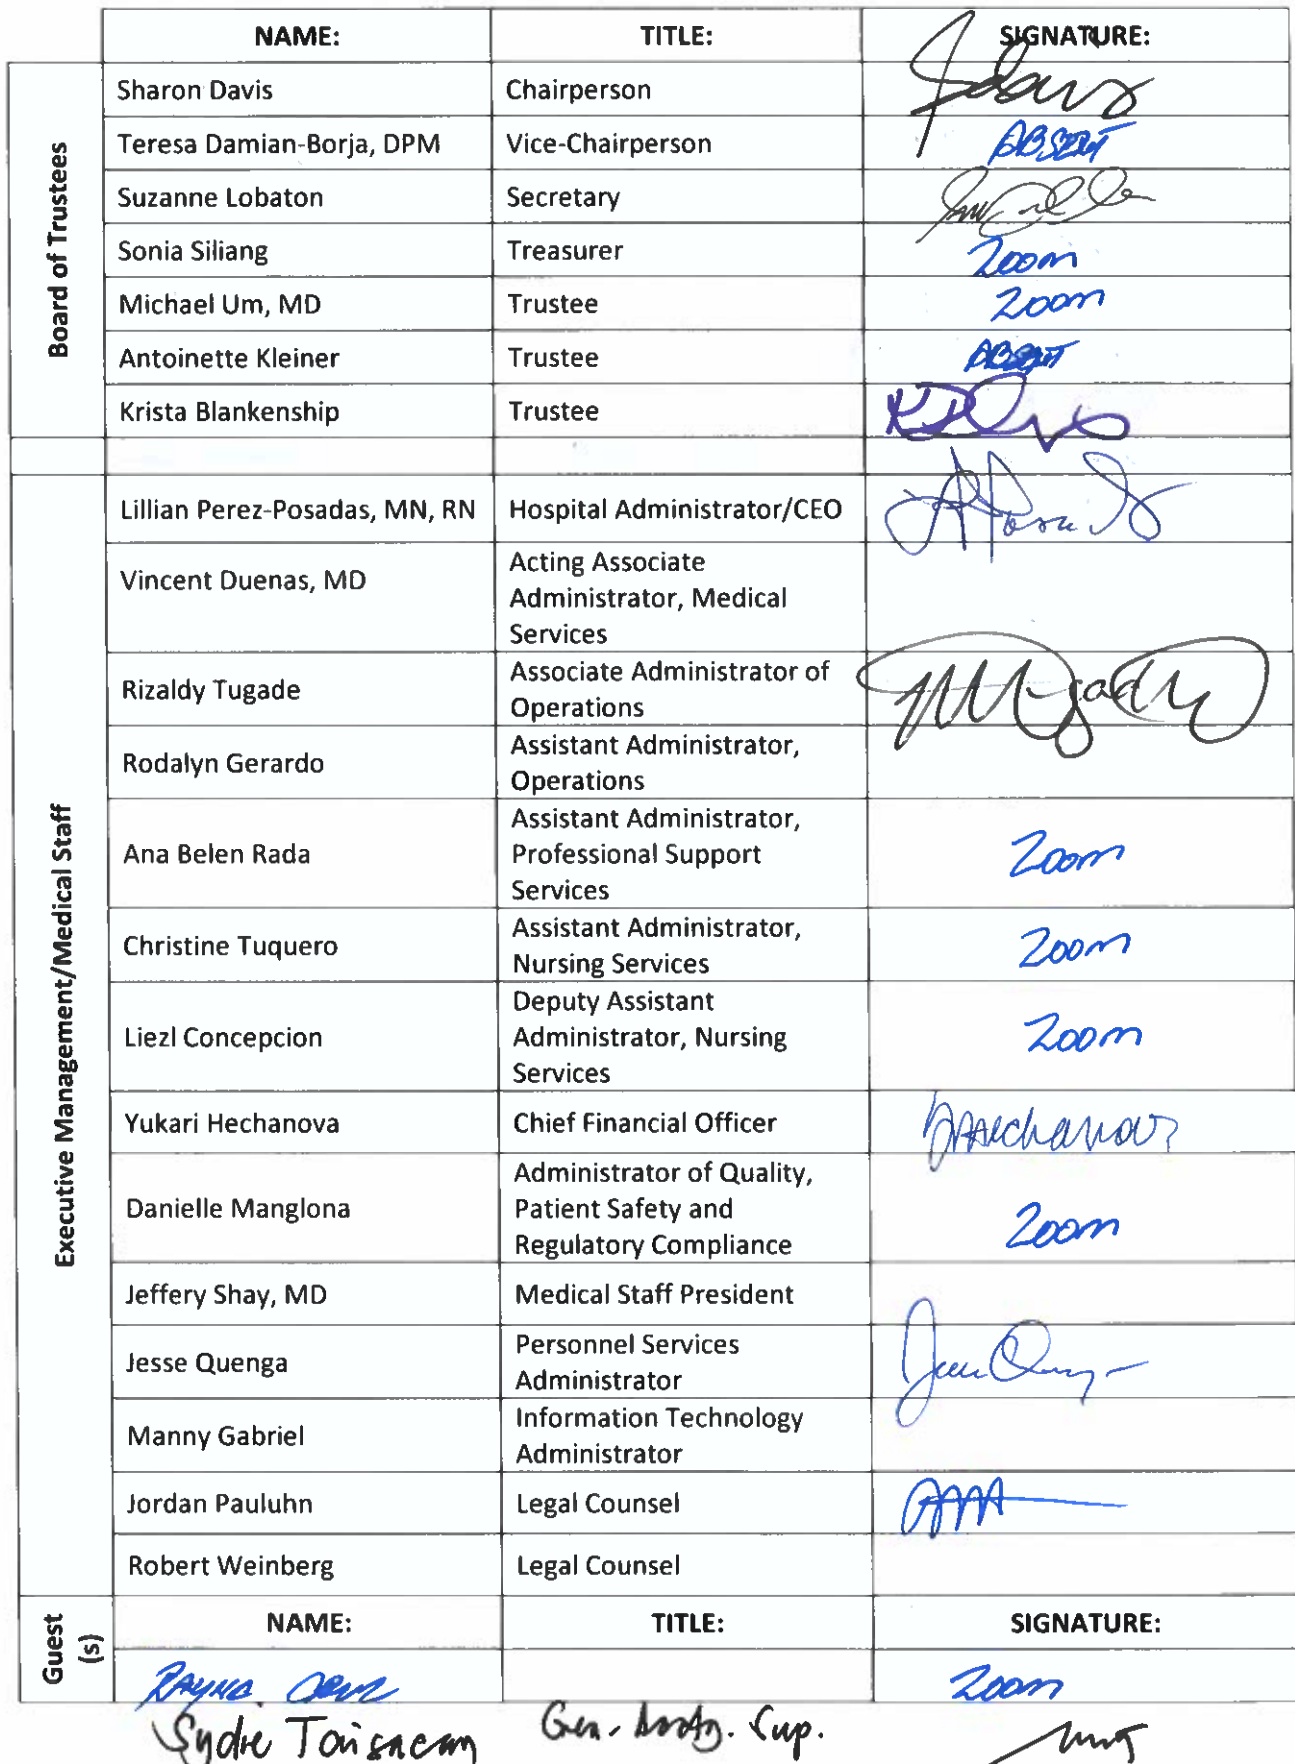 NAME: TITLE: SIGNATURE:
Board of Trustees
Sharon Davis Chairperson
Teresa Damian-Borja, DPM Vice-Chairperson ABSENT
Suzanne Lobaton Secretary
Sonia Siliang Treasurer Zoom
Michael Um, MD Trustee Zoom
Antoinette Kleiner Trustee ABSENT
Krista Blankenship Trustee
Executive Management/Medical Staff
Lillian Perez-Posadas, MN, RN Hospital Administrator/CEO
Vincent Duenas, MD Acting Associate
Administrator, Medical
Services
Rizaldy Tugade Associate Administrator of
Operations
Rodalyn Gerardo Assistant Administrator,
Operations
Ana Belen Rada Assistant Administrator,
Professional Support
Services Zoom
Christine Tuquero Assistant Administrator,
Nursing Services Zoom
Liezl Concepcion Deputy Assistant
Administrator, Nursing
Services Zoom
Yukari Hechanova Chief Financial Officer
Danielle Manglona Administrator of Quality,
Patient Safety and
Regulatory Compliance Zoom
Jeffery Shay, MD Medical Staff President
Jesse Quenga Personnel Services
Administrator
Manny Gabriel Information Technology
Administrator
Jordan Pauluhn Legal Counsel
Robert Weinberg Legal Counsel
Guest
(s)
NAME: TITLE: SIGNATURE:
Zoom
Sydie Taisacan Gen. Acctg. Sup.